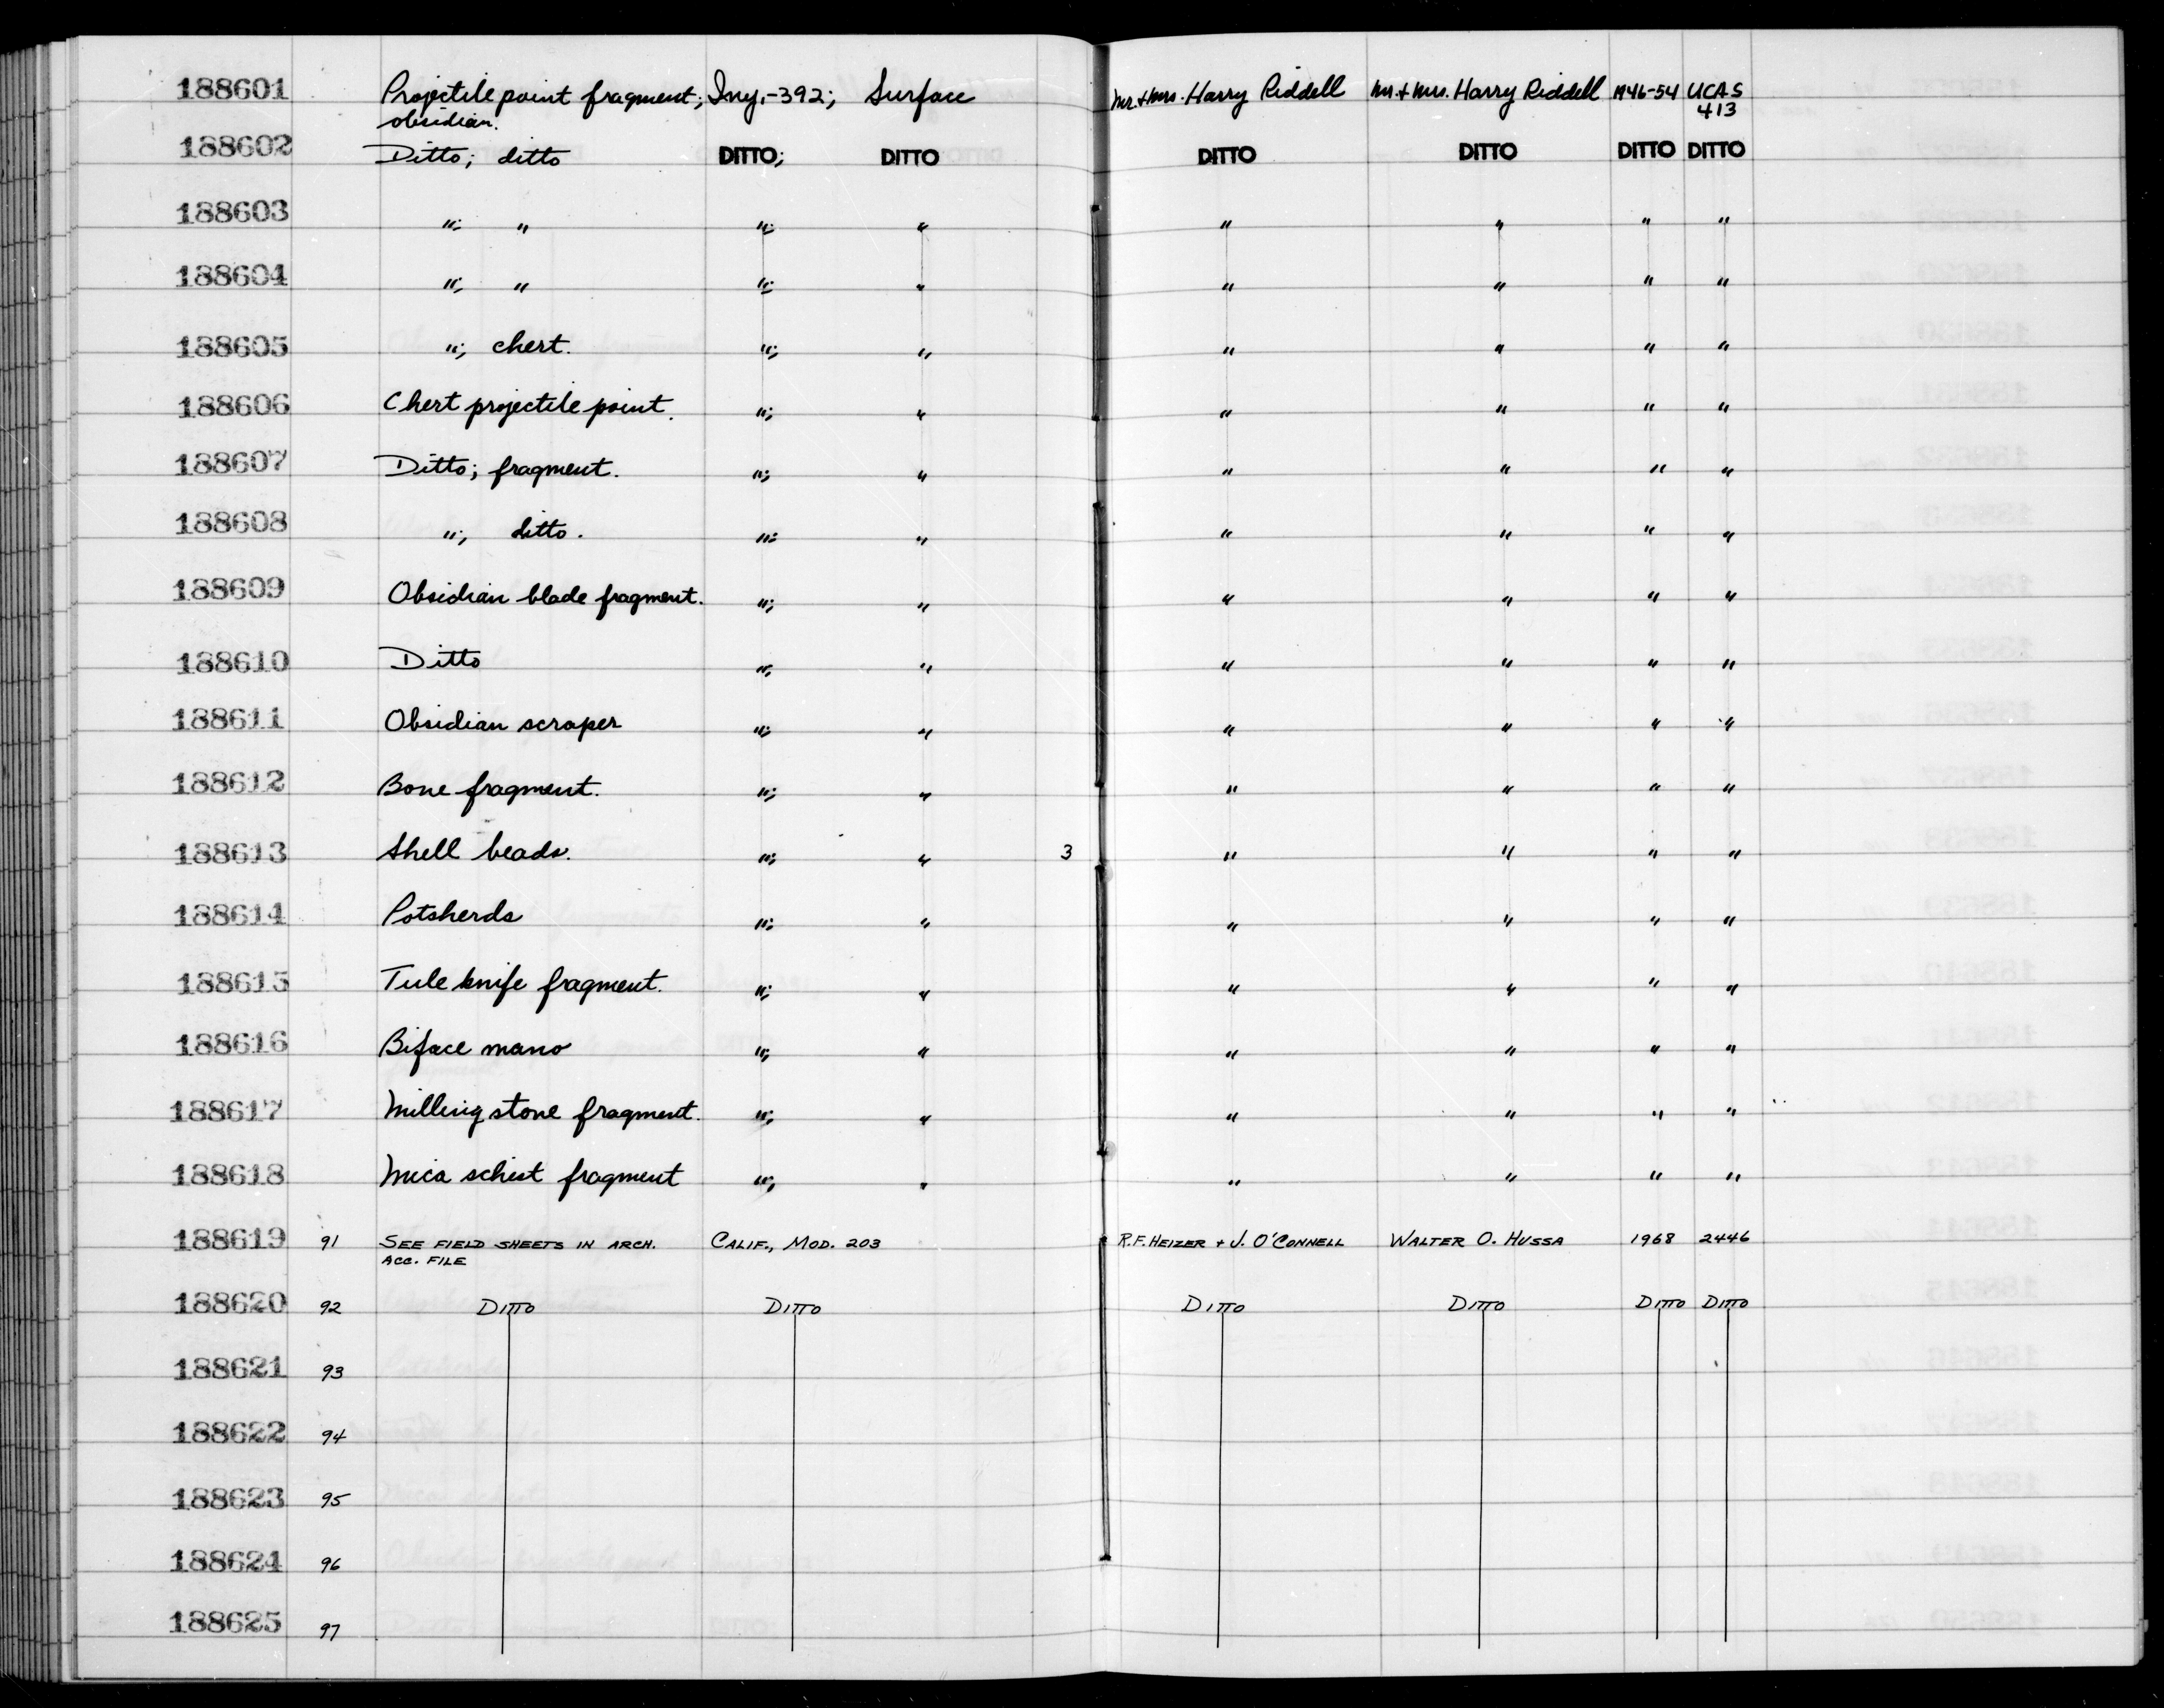 188601 Projectile point fragment; Iny.-392; Surface Mr. & Mrs. Harry Riddell Mr. & Mrs. Harry Riddell 1946-54 UCAS
obsidian. 413
188602 Ditto; ditto DITTO; DITTO DITTO DITTO DITTO DITTO
188603 "; " "; " " " " "
188604 "; " "; " " " " "
188605 "; chert. "; " " " " "
188606 Chert projectile point. "; " " " " "
188607 Ditto; fragment. "; " " " " "
188608 "; ditto. "; " " " " "
188609 Obsidian blade fragment. "; " " " " "
188610 Ditto "; " " " " "
188611 Obsidian scraper "; " " " " "
188612 Bone fragment. "; " " " " "
188613 Shell beads. "; " 3 " " " "
188614 Potsherds "; " " " " "
188615 Tule knife fragment. "; " " " " "
188616 Biface mano "; " " " " "
188617 Milling stone fragment. "; " " " " "
188618 Mica schist fragment "; " " " " "
188619 91 SEE FIELD SHEETS IN ARCH. CALIF., MOD. 203 R.F. HEIZER + J. O'CONNELL WALTER O. HUSSA 1968 2446
ACC. FILE
188620 92 DITTO DITTO DITTO DITTO DITTO DITTO
188621 93
188622 94
188623 95
188624 96
188625 97